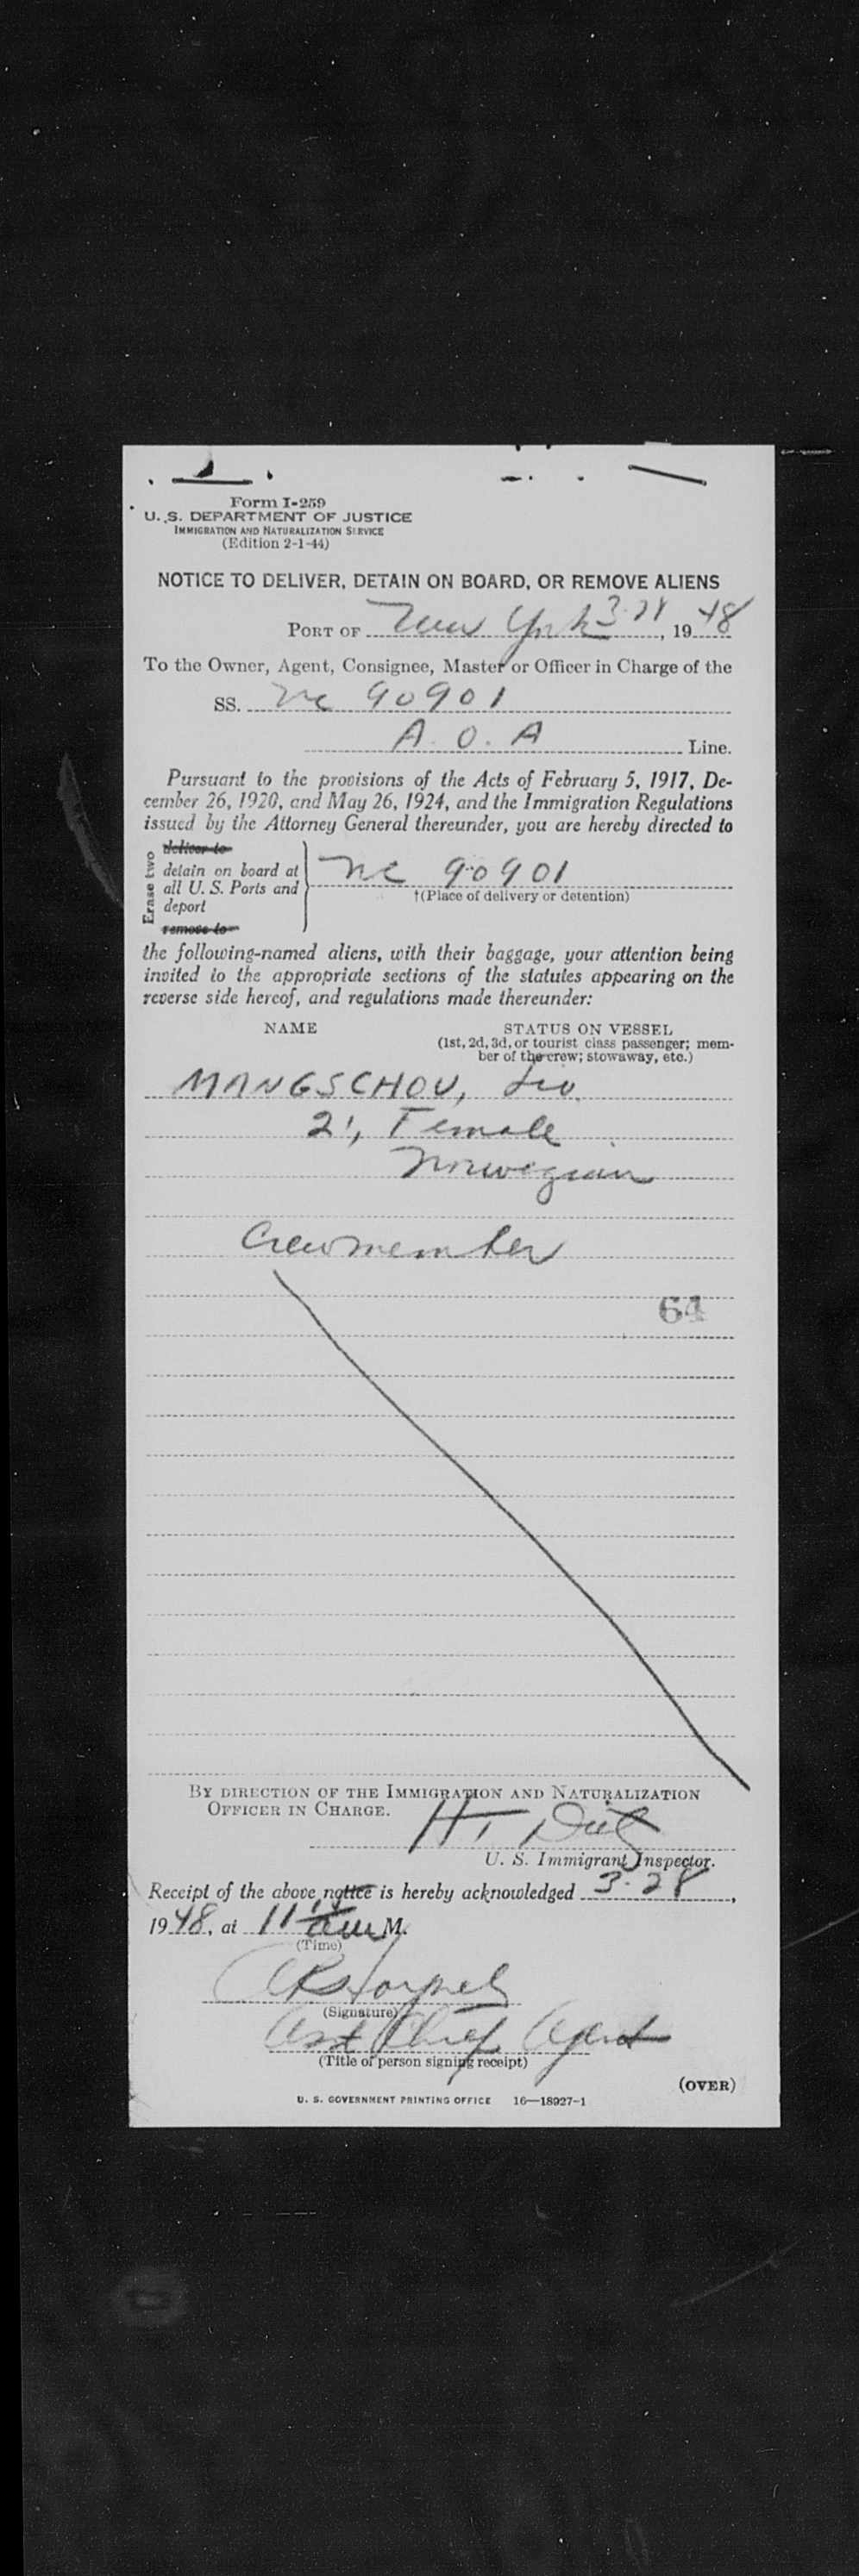 Form I-259
U. S. DEPARTMENT OF JUSTICE
IMMIGRATION AND NATURALIZATION SERVICE
(Edition 2-1-44)
NOTICE TO DELIVER, DETAIN ON BOARD, OR REMOVE ALIENS
PORT OF New York 3-28, 1948
To the Owner, Agent, Consignee, Master or Officer in Charge of the
SS. nc 90901
A. O. A Line.
Pursuant to the provisions of the Acts of February 5, 1917, De-
cember 26, 1920, and May 26, 1924, and the Immigration Regulations
issued by the Attorney General thereunder, you are hereby directed to
Erase two
deliver to
detain on board at
all U. S. Ports and
deport
remove to
nc 90901
†(Place of delivery or detention)
the following-named aliens, with their baggage, your attention being
invited to the appropriate sections of the statutes appearing on the
reverse side hereof, and regulations made thereunder:
NAME STATUS ON VESSEL
(1st, 2d, 3d, or tourist class passenger; mem-
ber of the crew; stowaway, etc.)
MANGSCHOU, Liv
21, Female
Norwegian
Crewmember
64
BY DIRECTION OF THE IMMIGRATION AND NATURALIZATION
OFFICER IN CHARGE.
U. S. Immigrant Inspector.
Receipt of the above notice is hereby acknowledged 3-28,
1948, at 11 M.
(Time)
(Signature)
Asst Chief Agent
(Title of person signing receipt)
(OVER)
U. S. GOVERNMENT PRINTING OFFICE 16—18927-1